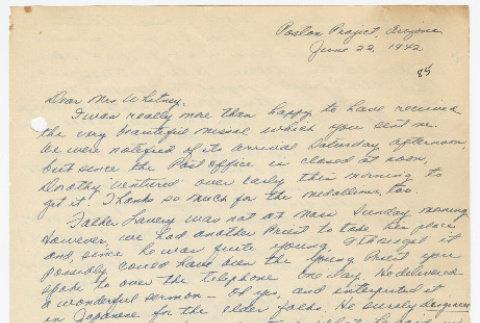 Poston Project, Arizona
June 22, 1942
85
Dear Mrs Whitney,
I was really more than happy to have received
the very beautiful missal which you sent me.
We were notified of its arrival Saturday afternoon,
but since the Post Office is closed at noon,
Dorothy ventured over early this morning to
get it. Thanks so much for the medallions, too.
Father Lavery was not at Mass Sunday morning.
However, we had another Priest to take his place
and, since he was quite young, I thought it
possibly could have been the young Priest you
spoke to over the telephone one day. He delivered
a wonderful sermon — oh yes, and interpreted it
in Japanese for the elder folks. He surely deserves